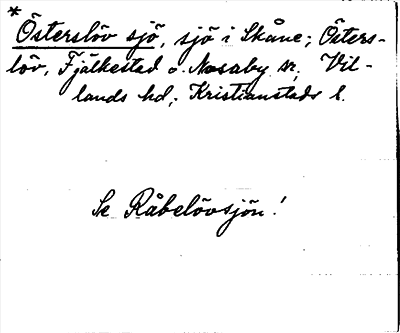 *
Österslöv sjö, sjö i Skåne; Östers-
löv, Fjälkestad o. Nosaby sn, Vil-
lands hd, Kristianstads l.
Se Råbelövsjön!